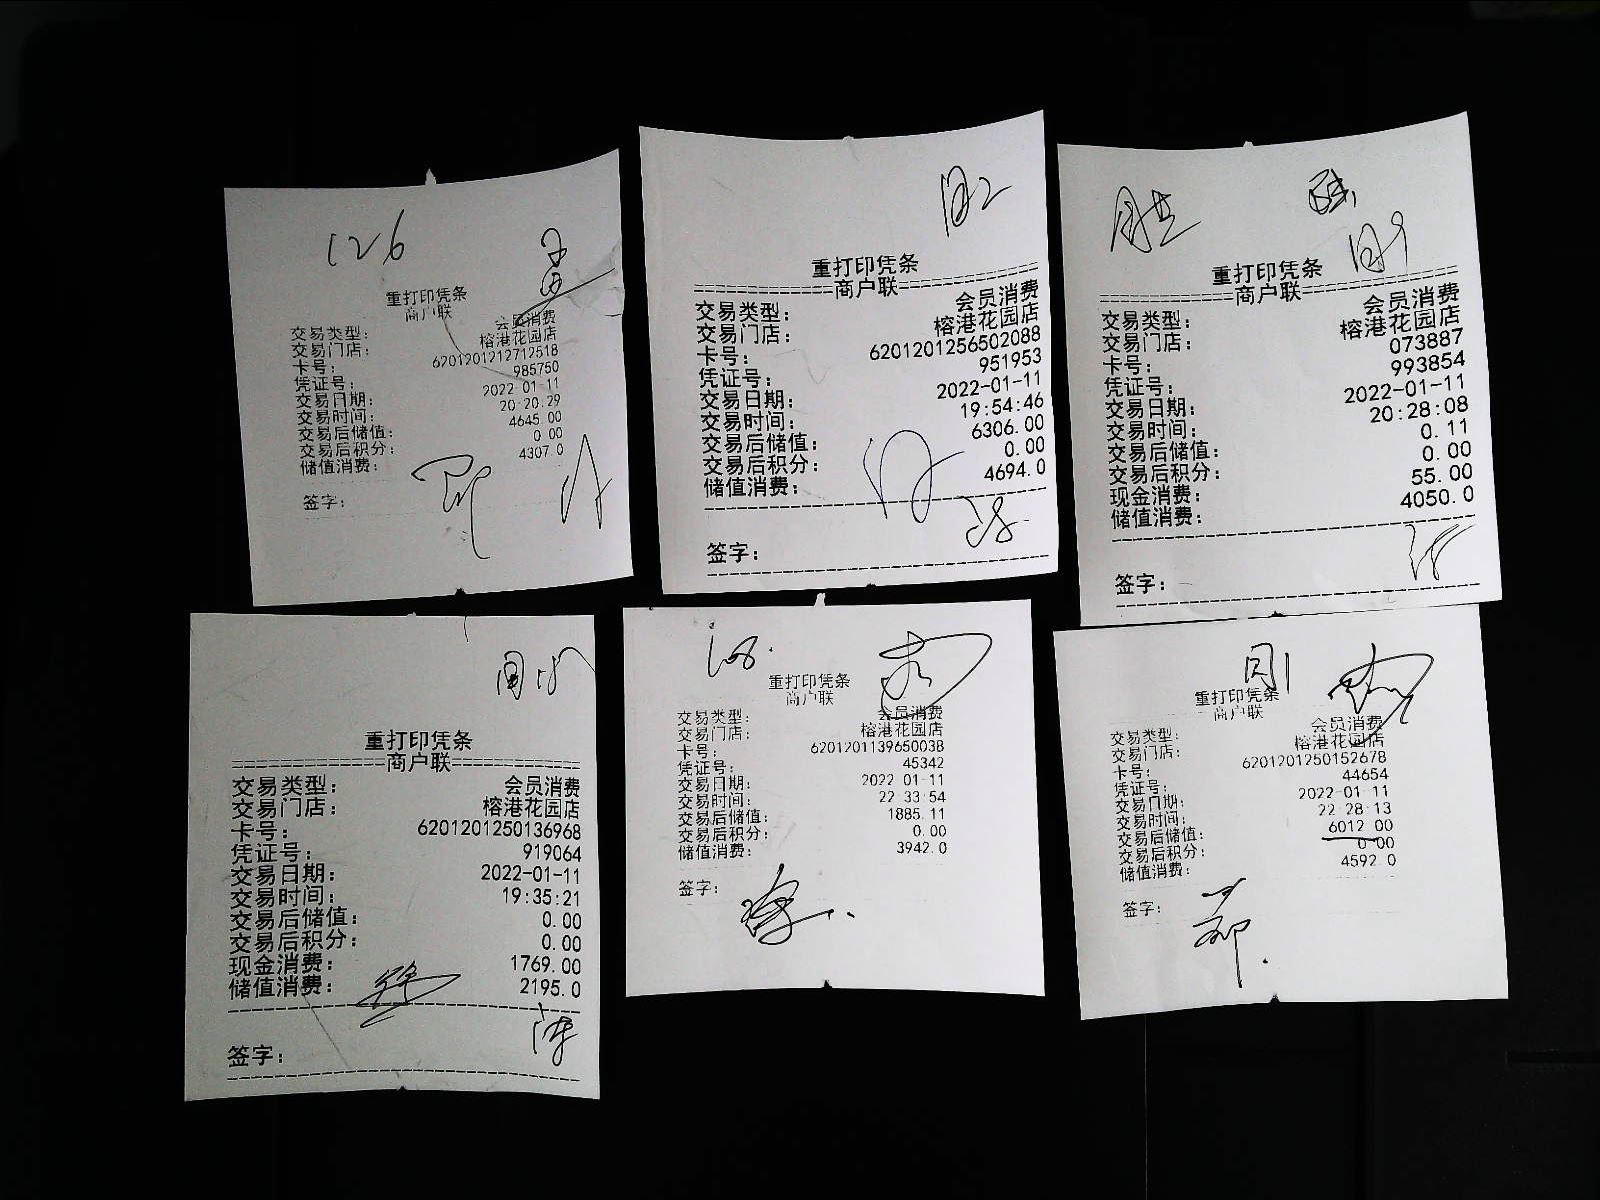 126
重打印凭条
商户联
交易类型： 会员消费
交易门店： 榕港花园店
卡号： 6201201212712518
凭证号： 985750
交易日期： 2022-01-11
交易时间： 20:20:29
交易后储值： 4645.00
交易后积分： 0.00
储值消费： 4307.0
签字：
重打印凭条
商户联
交易类型： 会员消费
交易门店： 榕港花园店
卡号： 6201201256502088
凭证号： 951953
交易日期： 2022-01-11
交易时间： 19:54:46
交易后储值： 6306.00
交易后积分： 0.00
储值消费： 4694.0
签字：
重打印凭条
商户联
交易类型： 会员消费
交易门店： 榕港花园店
卡号： 073887
凭证号： 993854
交易日期： 2022-01-11
交易时间： 20:28:08
交易后储值： 0.11
交易后积分： 0.00
现金消费： 55.00
储值消费： 4050.0
签字：
重打印凭条
商户联
交易类型： 会员消费
交易门店： 榕港花园店
卡号： 6201201250136968
凭证号： 919064
交易日期： 2022-01-11
交易时间： 19:35:21
交易后储值： 0.00
交易后积分： 0.00
现金消费： 1769.00
储值消费： 2195.0
签字：
重打印凭条
商户联
交易类型： 会员消费
交易门店： 榕港花园店
卡号： 6201201139650038
凭证号： 45342
交易日期： 2022-01-11
交易时间： 22:33:54
交易后储值： 1885.11
交易后积分： 0.00
储值消费： 3942.0
签字：
重打印凭条
商户联
交易类型： 会员消费
交易门店： 榕港花园店
卡号： 6201201250152678
凭证号： 44654
交易日期： 2022-01-11
交易时间： 22:28:13
交易后储值： 6012.00
交易后积分： 0.00
储值消费： 4592.0
签字：